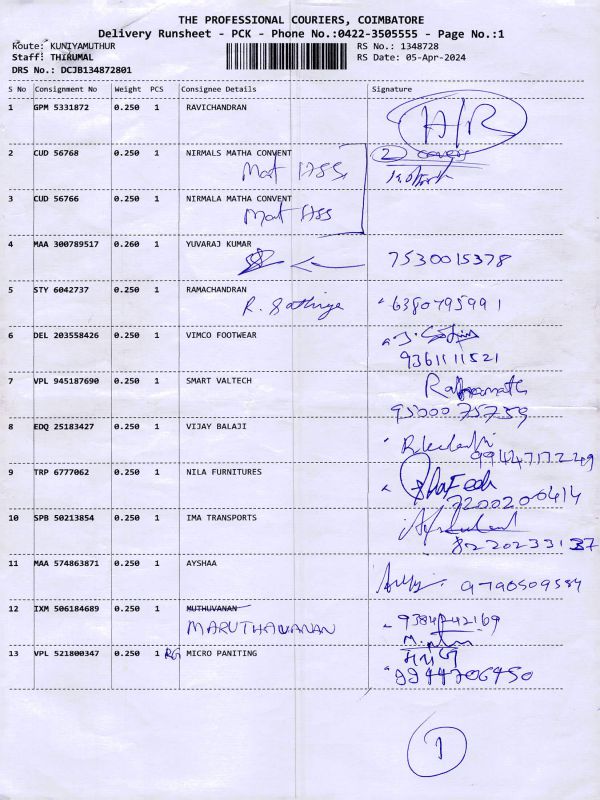 THE PROFESSIONAL COURIERS, COIMBATORE
Delivery Runsheet - PCK - Phone No.:0422-3505555 - Page No.:1
Route: KUNIYAMUTHUR RS No.: 1348728
Staff: THIRUMAL RS Date: 05-Apr-2024
DRS No.: DCJB134872801
S No Consignment No Weight PCS Consignee Details Signature
1 GPM 5331872 0.250 1 RAVICHANDRAN
A/R
2 CUD 56768 0.250 1 NIRMALS MATHA CONVENT 2 covers
3 CUD 56766 0.250 1 NIRMALA MATHA CONVENT
4 MAA 300789517 0.260 1 YUVARAJ KUMAR
7530015378
5 STY 6042737 0.250 1 RAMACHANDRAN
R. Sathiya 6380795991
6 DEL 203558426 0.250 1 VIMCO FOOTWEAR
9361111521
7 VPL 945187690 0.250 1 SMART VALTECH
95000 75759
8 EDQ 25183427 0.250 1 VIJAY BALAJI
9 TRP 6777062 0.250 1 NILA FURNITURES
7200200414
10 SPB 50213854 0.250 1 IMA TRANSPORTS
11 MAA 574863871 0.250 1 AYSHAA
12 IXM 506184689 0.250 1 MUTHUVANAN
MARUTHAVANAN
13 VPL 521800347 0.250 1 RG MICRO PANITING
9944706450
1